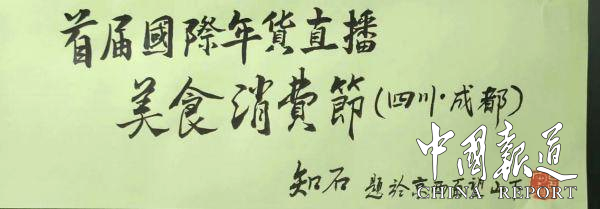 首届國際年貨直播
美食消費節(四川·成都)
知石 題於京西
中國報道
CHINA REPORT